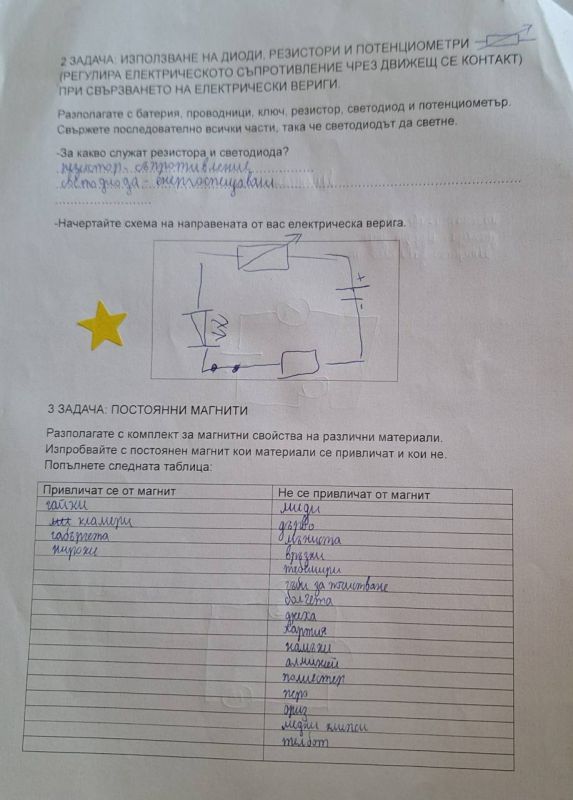 2 ЗАДАЧА: ИЗПОЛЗВАНЕ НА ДИОДИ, РЕЗИСТОРИ И ПОТЕНЦИОМЕТРИ
(РЕГУЛИРА ЕЛЕКТРИЧЕСКОТО СЪПРОТИВЛЕНИЕ ЧРЕЗ ДВИЖЕЩ СЕ КОНТАКТ)
ПРИ СВЪРЗВАНЕТО НА ЕЛЕКТРИЧЕСКИ ВЕРИГИ.
Разполагате с батерия, проводници, ключ, резистор, светодиод и потенциометър.
Свържете последователно всички части, така че светодиодът да светне.
-За какво служат резистора и светодиода?
резистор - съпротивление
светодиода - енергоспестяващ
-Начертайте схема на направената от вас електрическа верига.
+
-
3 ЗАДАЧА: ПОСТОЯННИ МАГНИТИ
Разполагате с комплект за магнитни свойства на различни материали.
Изпробвайте с постоянен магнит кои материали се привличат и кои не.
Попълнете следната таблица:
Привличат се от магнит Не се привличат от магнит
гайки миди
кламери дърво
габърчета мъниста
пирони връзки
тебешири
гъби за почистване
болчета
дреха
хартия
камъни
алуминий
полиестер
перо
ориз
медни клипси